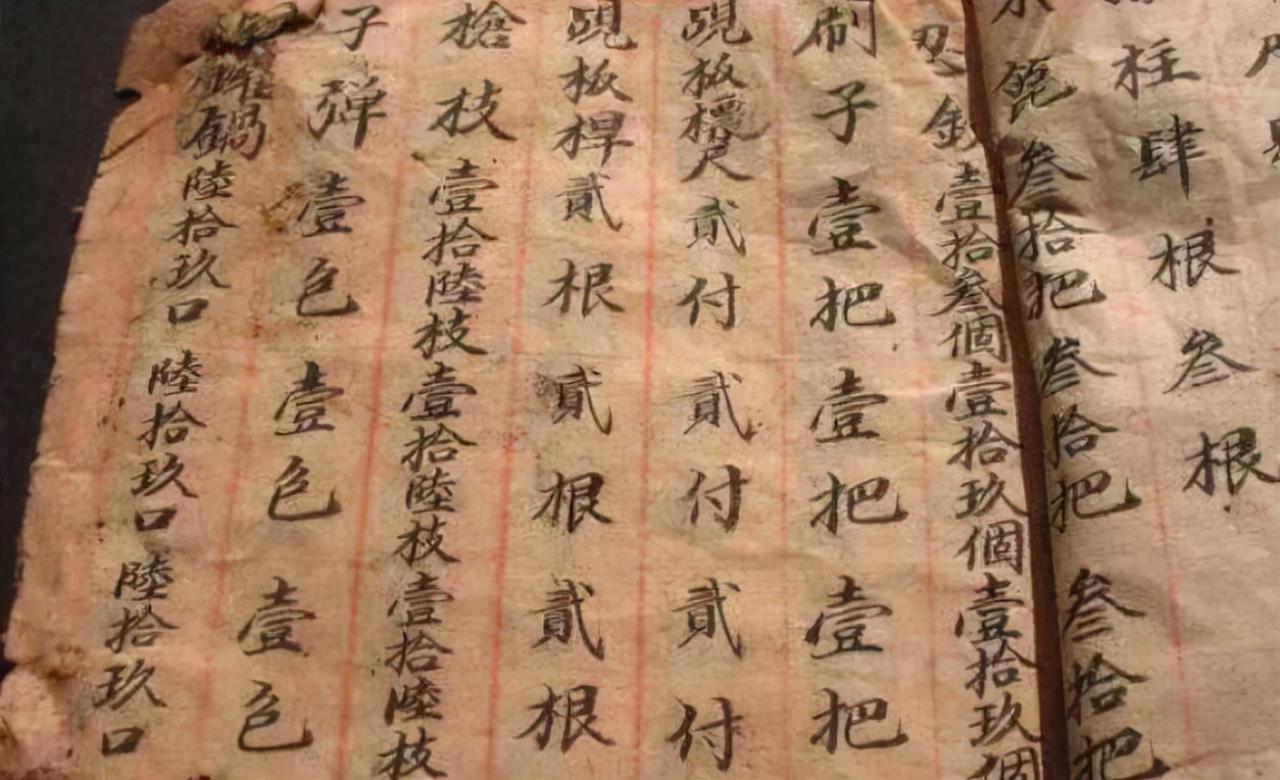 柱肆根叁根
叁拾把叁拾把叁拾把
壹拾叁個壹拾玖個壹拾玖個
刷子壹把壹把壹把
覘板標尺貳付貳付貳付
覘板桿貳根貳根貳根
槍枝壹拾陸枝壹拾陸枝壹拾陸枝
子弹壹色壹色壹色
鍋陸拾玖口陸拾玖口陸拾玖口